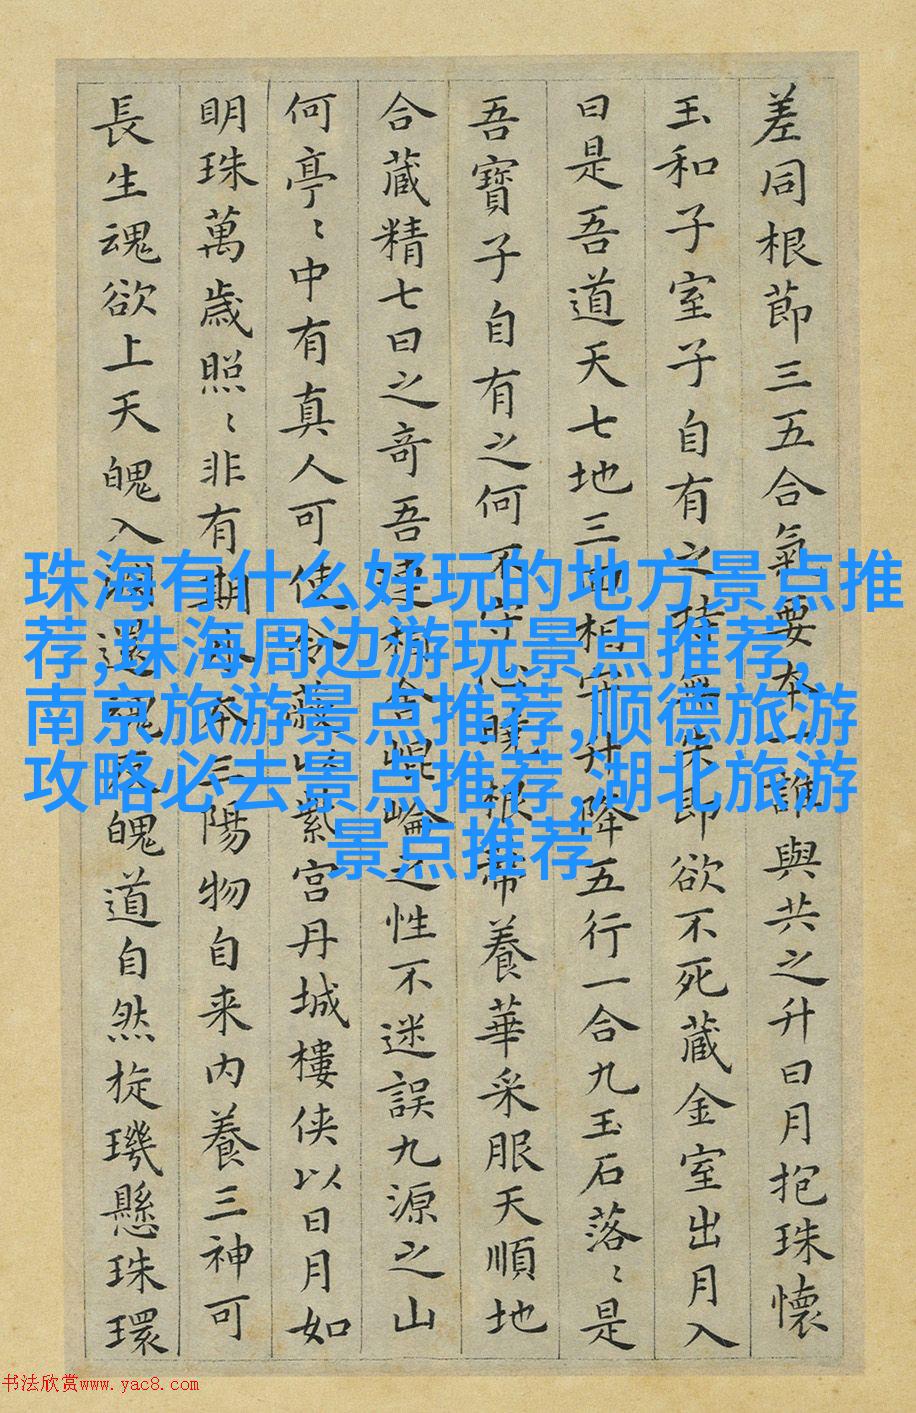 差同根節三五合氣要本一誰與共之升日月抱珠懷
玉和子室子自有之持無失即欲不死藏金室出月入
日是吾道天七地三回相守升降五行一合九玉石落〻是
吾寶子自有之何不守心曉根蒂養華采服天順地
合藏精七日之奇吾連相合崐崘之性不迷誤九源之山
何亭〻中有真人可使令蔽以紫宮丹城樓侠以日月如
明珠萬歲照〻非有期外本三陽物自来内養三神可
長生魂欲上天魄入淵還魂反魄道自然旋璣懸珠環
珠海有什么好玩的地方景点推
荐,珠海周边游玩景点推荐,
南京旅游景点推荐,顺德旅游
攻略必去景点推荐,湖北旅游
景点推荐
书法欣赏www.yac8.com